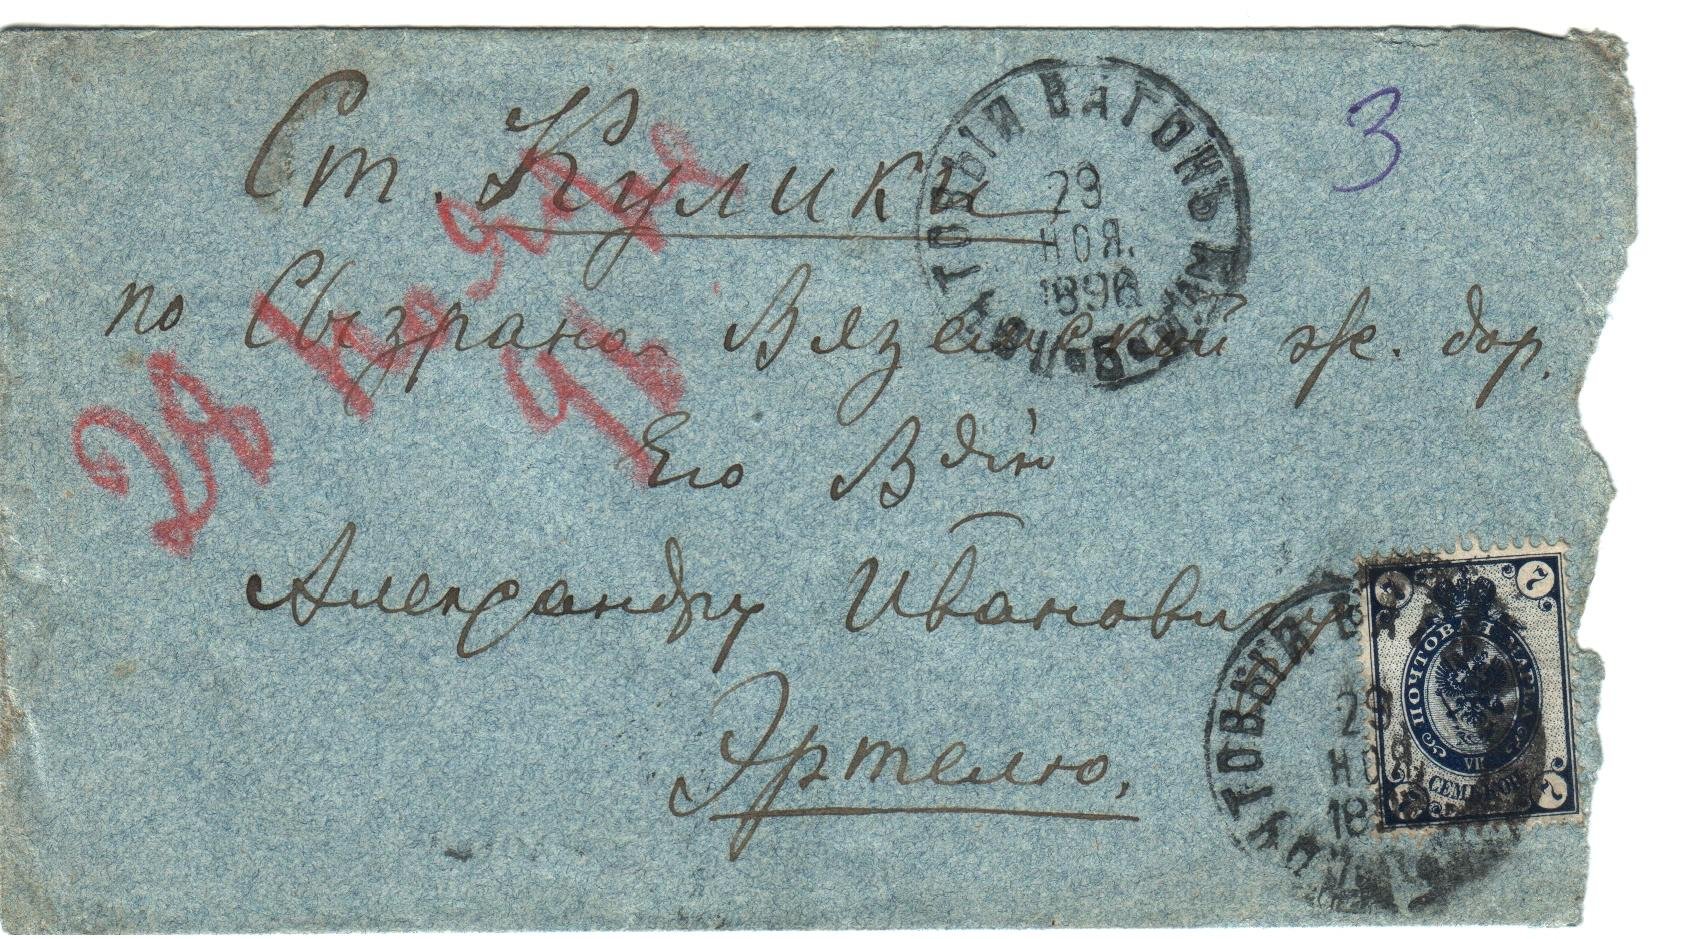 Ст. Кулики
по Сызрано-Вяземской ж. дор.
Его Вдію
Александру Ивановичу
Эртелю.
3
29 Нояб
96
ПОЧТОВЫЙ ВАГОНЪ
29
НОЯ.
1896
ПОЧТОВЫЙ ВА
29
НОЯ.
18
7
7
7
ПОЧТОВАЯ МАРКА
VII
СЕМЬ КОП